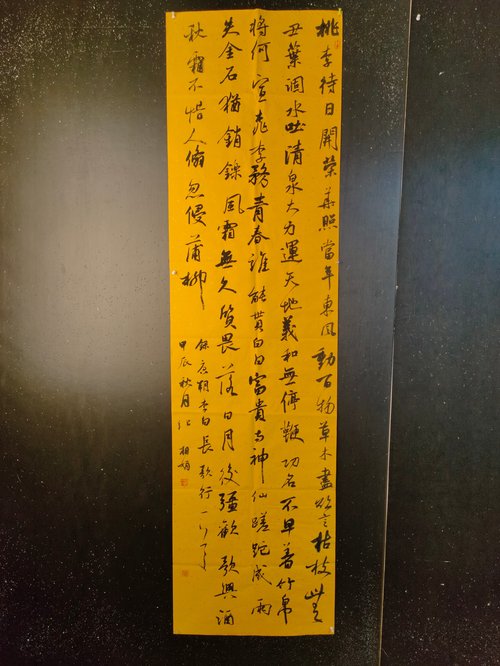 桃李待日開榮華照當年東風動百物草木盡欲言枯枝無
丑葉涸水吐清泉大力運天地義和無停鞭功名不早著竹帛
將何宣桃李務青春誰能貰白日富貴与神仙蹉跎成兩
失金石猶銷鑠風霜無久質畏落日月後彊歡歌與酒
秋霜不惜人倏忽侵蒲柳
錄唐朝李白長歌行一首
甲辰秋月江相娟